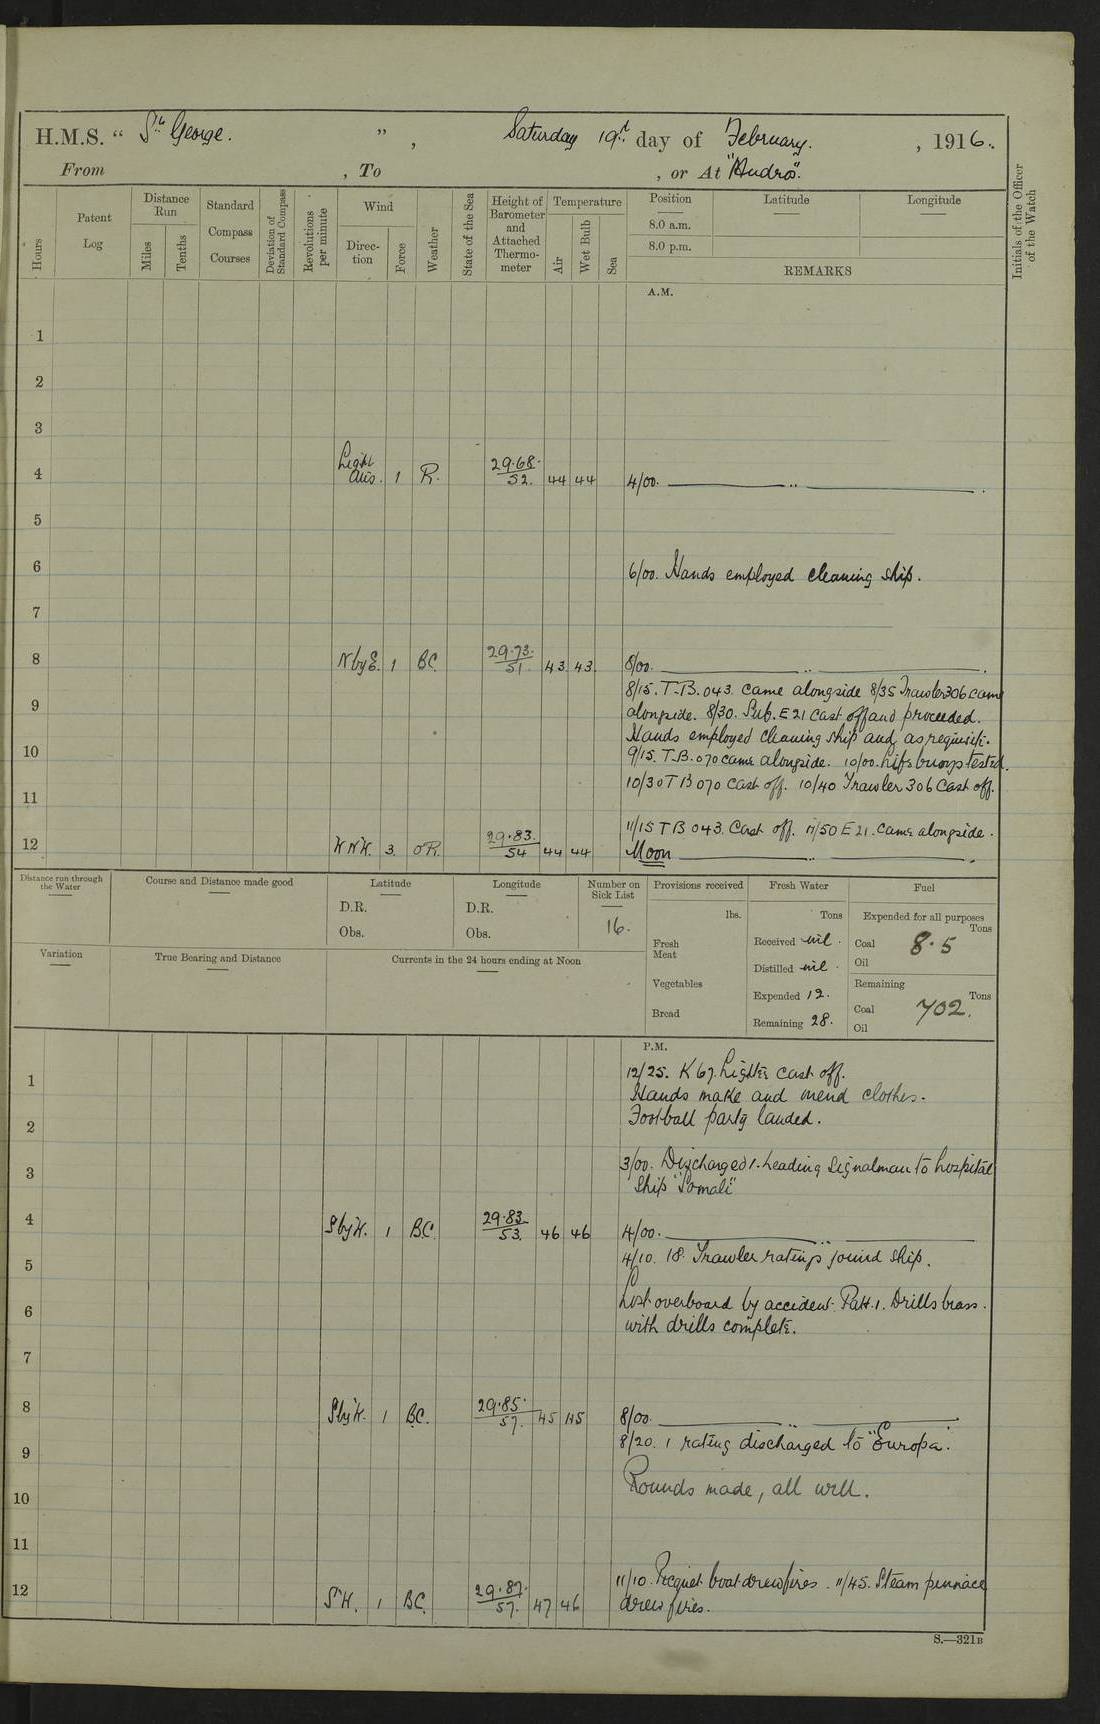 H.M.S. “ St. George. ” , Saturday 19th day of February. , 1916.
From , To , or At "Mudros".
Hours
Patent Log
Distance Run
Miles
Tenths
Standard Compass Courses
Deviation of Standard Compass
Revolutions per minute
Wind
Direction
Force
Weather
State of the Sea
Height of Barometer and Attached Thermometer
Temperature
Air
Wet Bulb
Sea
Position
8.0 a.m.
8.0 p.m.
Latitude
Longitude
REMARKS
Initials of the Officer of the Watch
A.M.
1
2
3
4 Light Airs. 1 R. 29.68 52. 44 44 4/00.
5
6 6/00. Hands employed cleaning ship.
7
8 N by E. 1 BC. 29.73. 51. 43. 43. 8/00.
8/15. T.B. 043. came alongside 8/35 Trawler 306 came
9 alongside. 8/30. Sub. E 21 cast off and proceeded.
Hands employed cleaning ship and as requisite.
10 9/15. T.B. 070 came alongside. 10/00. Lifebuoys tested.
10/30 T B 070 cast off. 10/40 Trawler 306 cast off.
11
11/15 T B 043. Cast off. 11/50 E 21. came alongside.
12 WNW. 3. OR. 29.83. 54 44 44 Noon
Distance run through the Water
Course and Distance made good
Latitude
D.R.
Obs.
Longitude
D.R.
Obs.
Number on Sick List
16.
Provisions received
lbs.
Fresh Meat
Vegetables
Bread
Fresh Water
Tons
Received nil.
Distilled nil.
Expended 12.
Remaining 28.
Fuel
Expended for all purposes
Tons
Coal 8.5
Oil
Remaining
Tons
Coal 702.
Oil
Variation
True Bearing and Distance
Currents in the 24 hours ending at Noon
P.M.
12/25. K 67. Lighter cast off.
1 Hands make and mend clothes.
2 Football party landed.
3 3/00. Discharged 1. Leading Signalman to hospital
Ship "Somali"
4 S by W. 1 B.C. 29.83 53. 46 46 4/00.
4/10. 18. Trawler ratings joined ship.
5
6 Lost overboard by accident. Patt. 1. Drills brass.
with drills complete.
7
8 S by W. 1 BC. 29.85. 57. 45 45 8/00.
8/20. 1 rating discharged to "Europa".
9
Rounds made, all well.
10
11
11/10. Picquet boat drew fires. 11/45. Steam pinnace
12 SW. 1 BC. 29.87. 57. 47 46 drew fires.
S.—321B